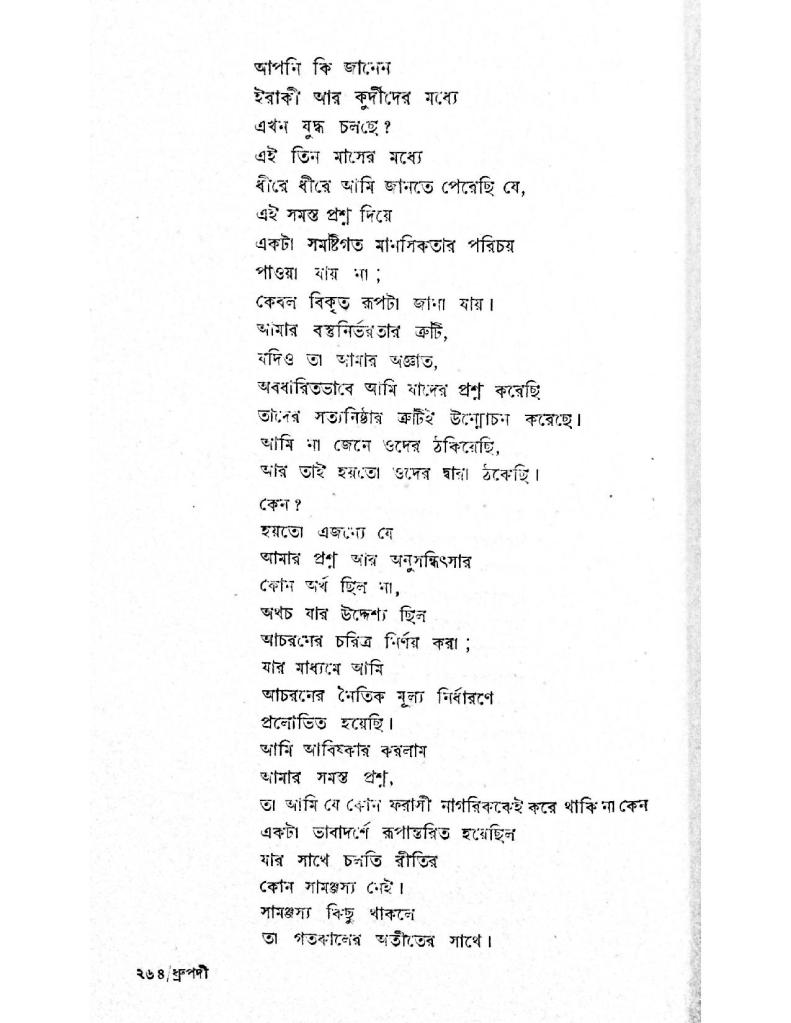 আপনি কি জানেন
ইরাকী আর কুর্দীদের মধ্যে
এখন যুদ্ধ চলছে?
এই তিন মাসের মধ্যে
ধীরে ধীরে আমি জানতে পেরেছি যে,
এই সমস্ত প্রশ্ন দিয়ে
একটা সমষ্টিগত মানসিকতার পরিচয়
পাওয়া যায় না;
কেবল বিকৃত রূপটা জানা যায়।
আমার বস্তুনির্ভরতার ত্রুটি,
যদিও তা আমার অজ্ঞাত,
অবধারিতভাবে আমি যাদের প্রশ্ন করেছি
তাদের সত্যনিষ্ঠার ত্রুটিই উন্মোচন করেছে।
আমি না জেনে ওদের ঠকিয়েছি,
আর তাই হয়তো ওদের দ্বারা ঠকেছি।
কেন?
হয়তো এজন্যে যে
আমার প্রশ্ন আর অনুসন্ধিৎসার
কোন অর্থ ছিল না,
অথচ যার উদ্দেশ্য ছিল
আচরনের চরিত্র নির্ণয় করা;
যার মাধ্যমে আমি
আচরনের নৈতিক মূল্য নির্ধারণে
প্রলোভিত হয়েছি।
আমি আবিষ্কার করলাম
আমার সমস্ত প্রশ্ন,
তা আমি যে কোন ফরাসী নাগরিককেই করে থাকি না কেন
একটা ভাবাদর্শে রূপান্তরিত হয়েছিল
যার সাথে চলতি রীতির
কোন সামঞ্জস্য নেই।
সামঞ্জস্য কিছু থাকলে
তা গতকালের অতীতের সাথে।
২৬৪/ধ্রুপদী